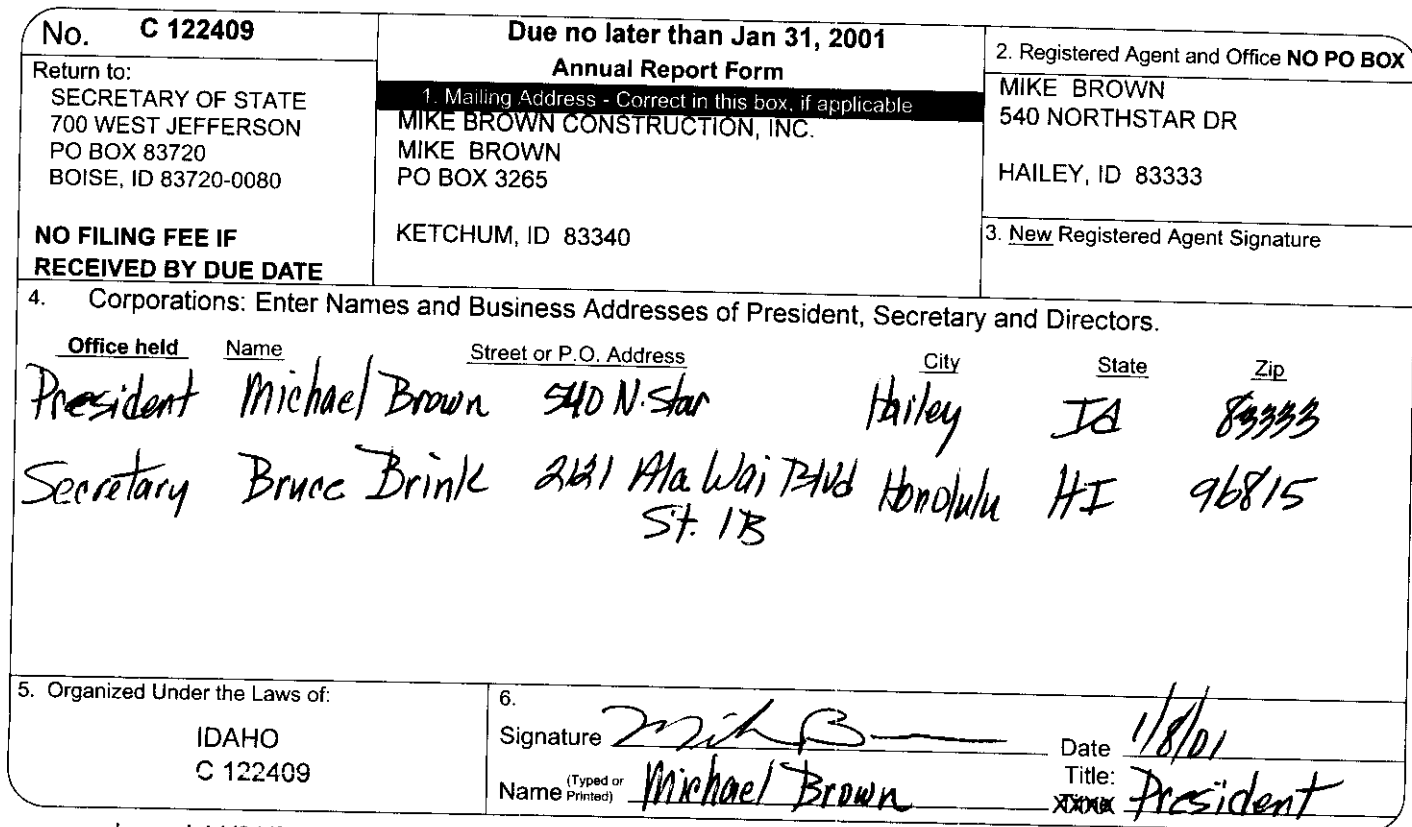 No. C 122409
Return to:
SECRETARY OF STATE
700 WEST JEFFERSON
PO BOX 83720
BOISE, ID 83720-0080
NO FILING FEE IF
RECEIVED BY DUE DATE
Due no later than Jan 31, 2001
Annual Report Form
1. Mailing Address - Correct in this box, if applicable
MIKE BROWN CONSTRUCTION, INC.
MIKE BROWN
PO BOX 3265
KETCHUM, ID 83340
2. Registered Agent and Office NO PO BOX
MIKE BROWN
540 NORTHSTAR DR
HAILEY, ID 83333
3. New Registered Agent Signature
4. Corporations: Enter Names and Business Addresses of President, Secretary and Directors.
Office held Name Street or P.O. Address City State Zip
President Michael Brown 540 N. Star Hailey Id 83333
Secretary Bruce Brink 2121 Ala Wai Blvd Honolulu HI 96815
St. 1B
5. Organized Under the Laws of:
IDAHO
C 122409
6.
Signature Mik B Date 1/8/01
Name (Typed or Printed) Michael Brown Title: President